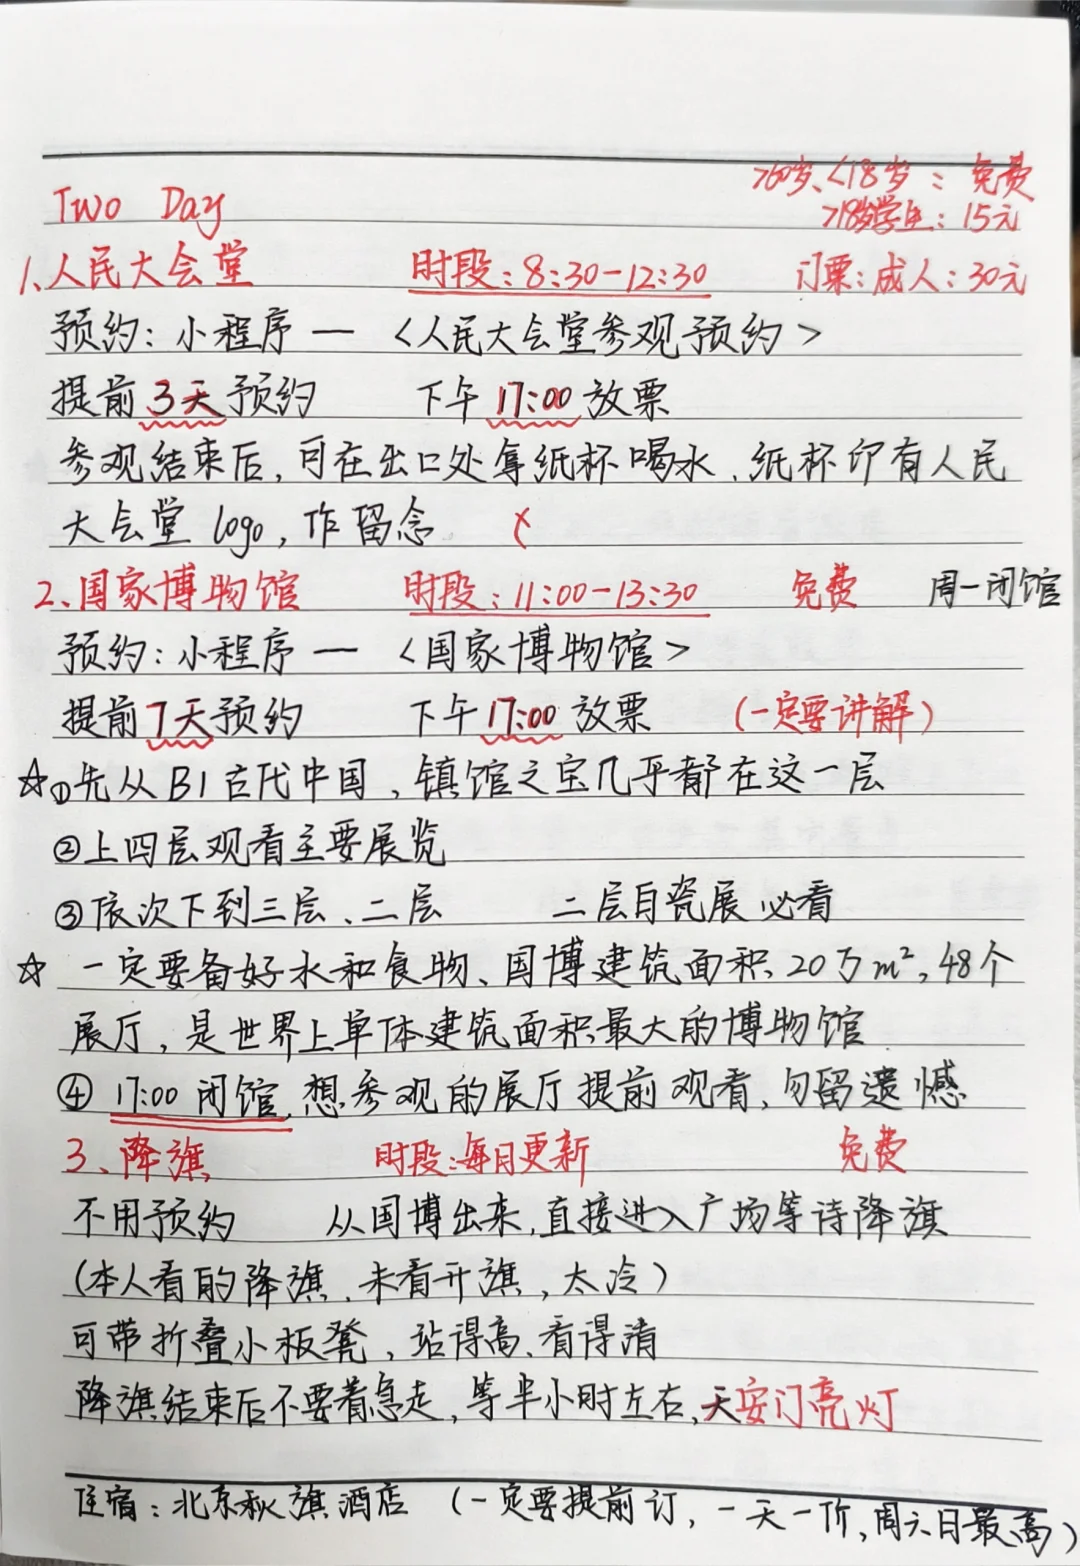 >60岁、<18岁：免费
Two Day >18岁学生：15元
1、人民大会堂 时段：8:30-12:30 门票：成人：30元
预约：小程序 — <人民大会堂参观预约>
提前3天预约 下午17:00放票
参观结束后，可在出口处拿纸杯喝水、纸杯印有人民
大会堂logo，作留念
2、国家博物馆 时段：11:00-13:30 免费 周一闭馆
预约：小程序 — <国家博物馆>
提前7天预约 下午17:00放票 (一定要讲解)
☆①先从B1古代中国，镇馆之宝几乎都在这一层
②上四层观看主要展览
③依次下到三层、二层 二层自瓷展必看
☆ 一定要备好水和食物、国博建筑面积20万m²，48个
展厅，是世界上单体建筑面积最大的博物馆
④ 17:00闭馆，想参观的展厅提前观看，勿留遗憾
3、降旗 时段：每日更新 免费
不用预约 从国博出来，直接进入广场等待降旗
(本人看的降旗，未看升旗，太冷)
可带折叠小板凳，站得高、看得清
降旗结束后不要着急走，等半小时左右，天安门亮灯
住宿：北京秋旗酒店 (一定要提前订，一天一价，周六日最高)